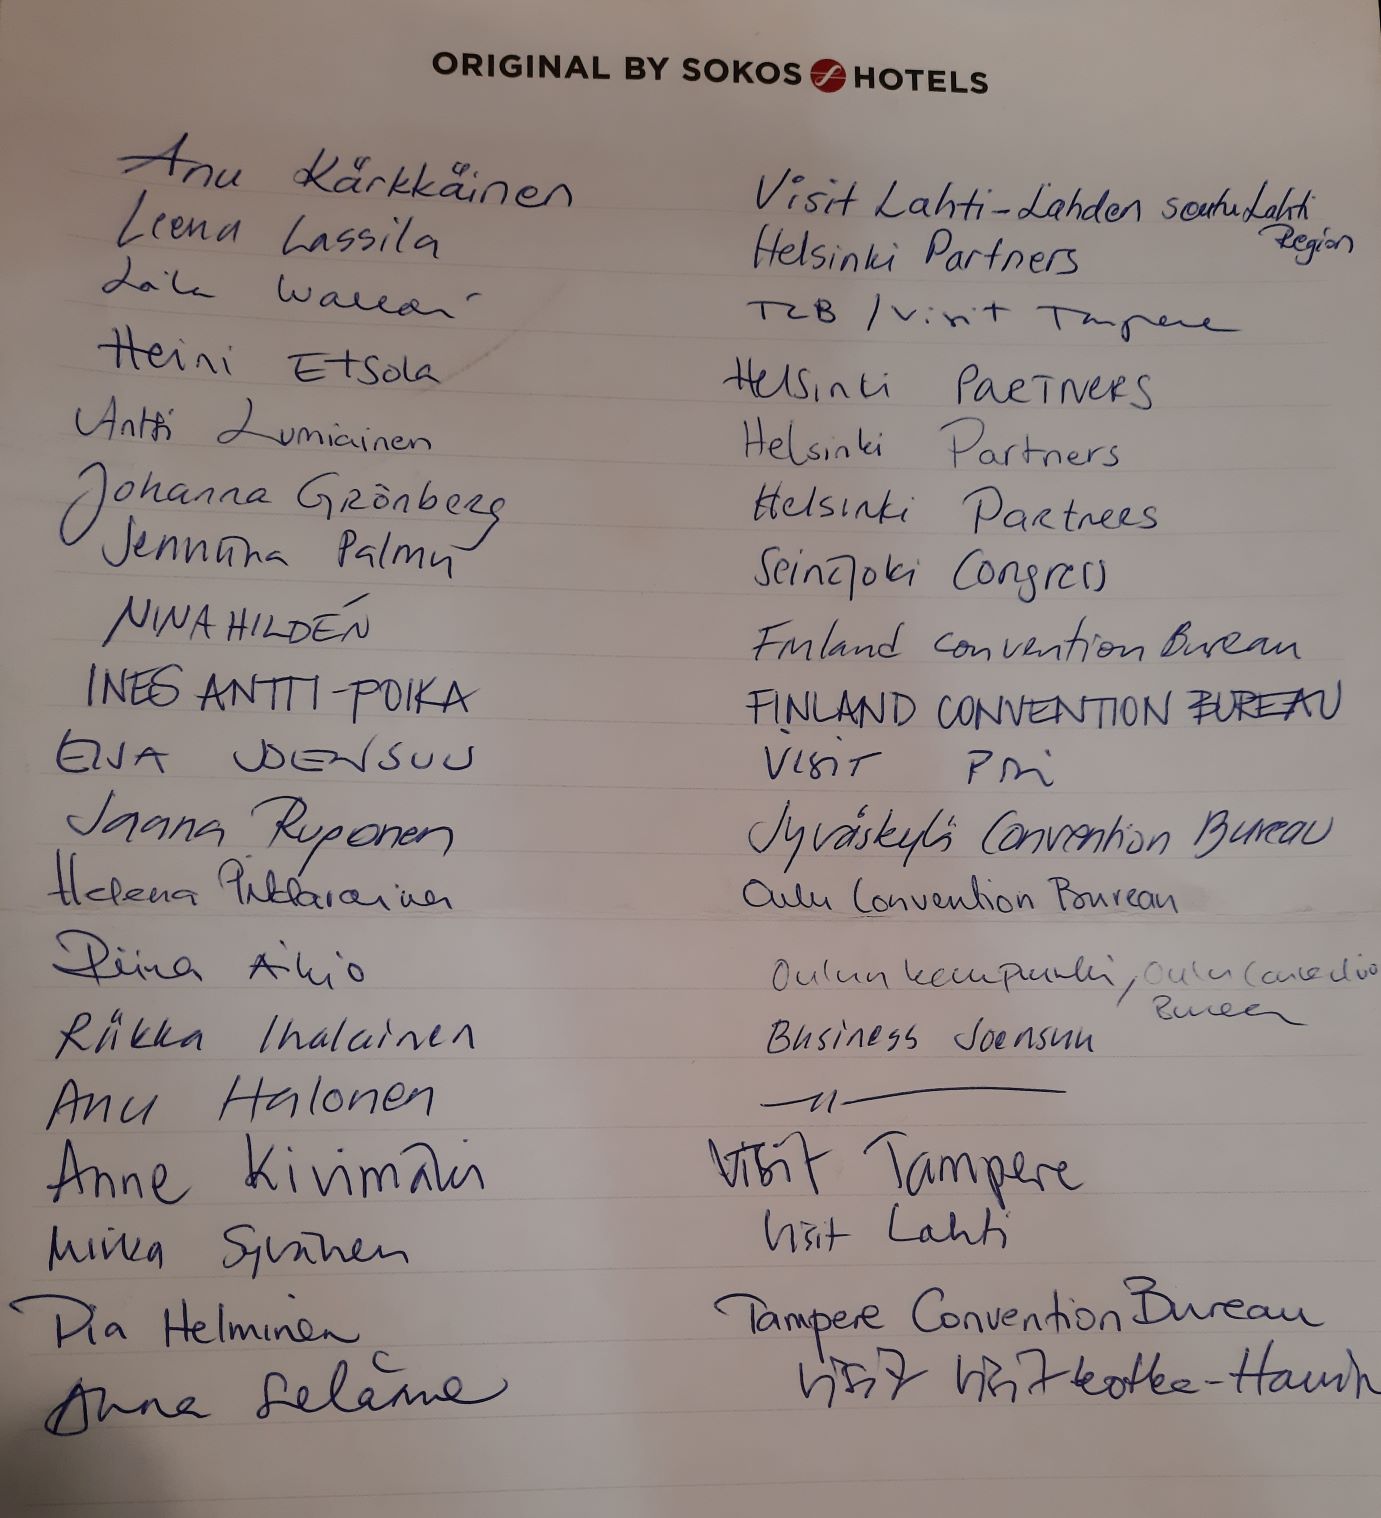 ORIGINAL BY SOKOS HOTELS
Anu Kärkkäinen Visit Lahti-Lahden seutu Lahti
Region
Leena Lassila Helsinki Partners
TCB / Visit Tampere
Heini Etsola Helsinki PARTNERS
Antti Lumiainen Helsinki Partners
Johanna Grönberg Helsinki Partners
Jenniina Palmu Seinäjoki Congress
NINA HILDÉN Finland Convention Bureau
INES ANTTI-POIKA FINLAND CONVENTION BUREAU
EIJA JOENSUU VISIT PORI
Jaana Ruponen Jyväskylä Convention Bureau
Helena Oulu Convention Bureau
Riina Aikio Oulun kaupunki, Oulu Convention
Bureau
Riikka Ihalainen Business Joensuu
Anu Halonen —〃—
Anne Kivimäki Visit Tampere
Mirka Syvänen Visit Lahti
Pia Helminen Tampere Convention Bureau
Anna Selänne Visit Visit Kotka-Hamin